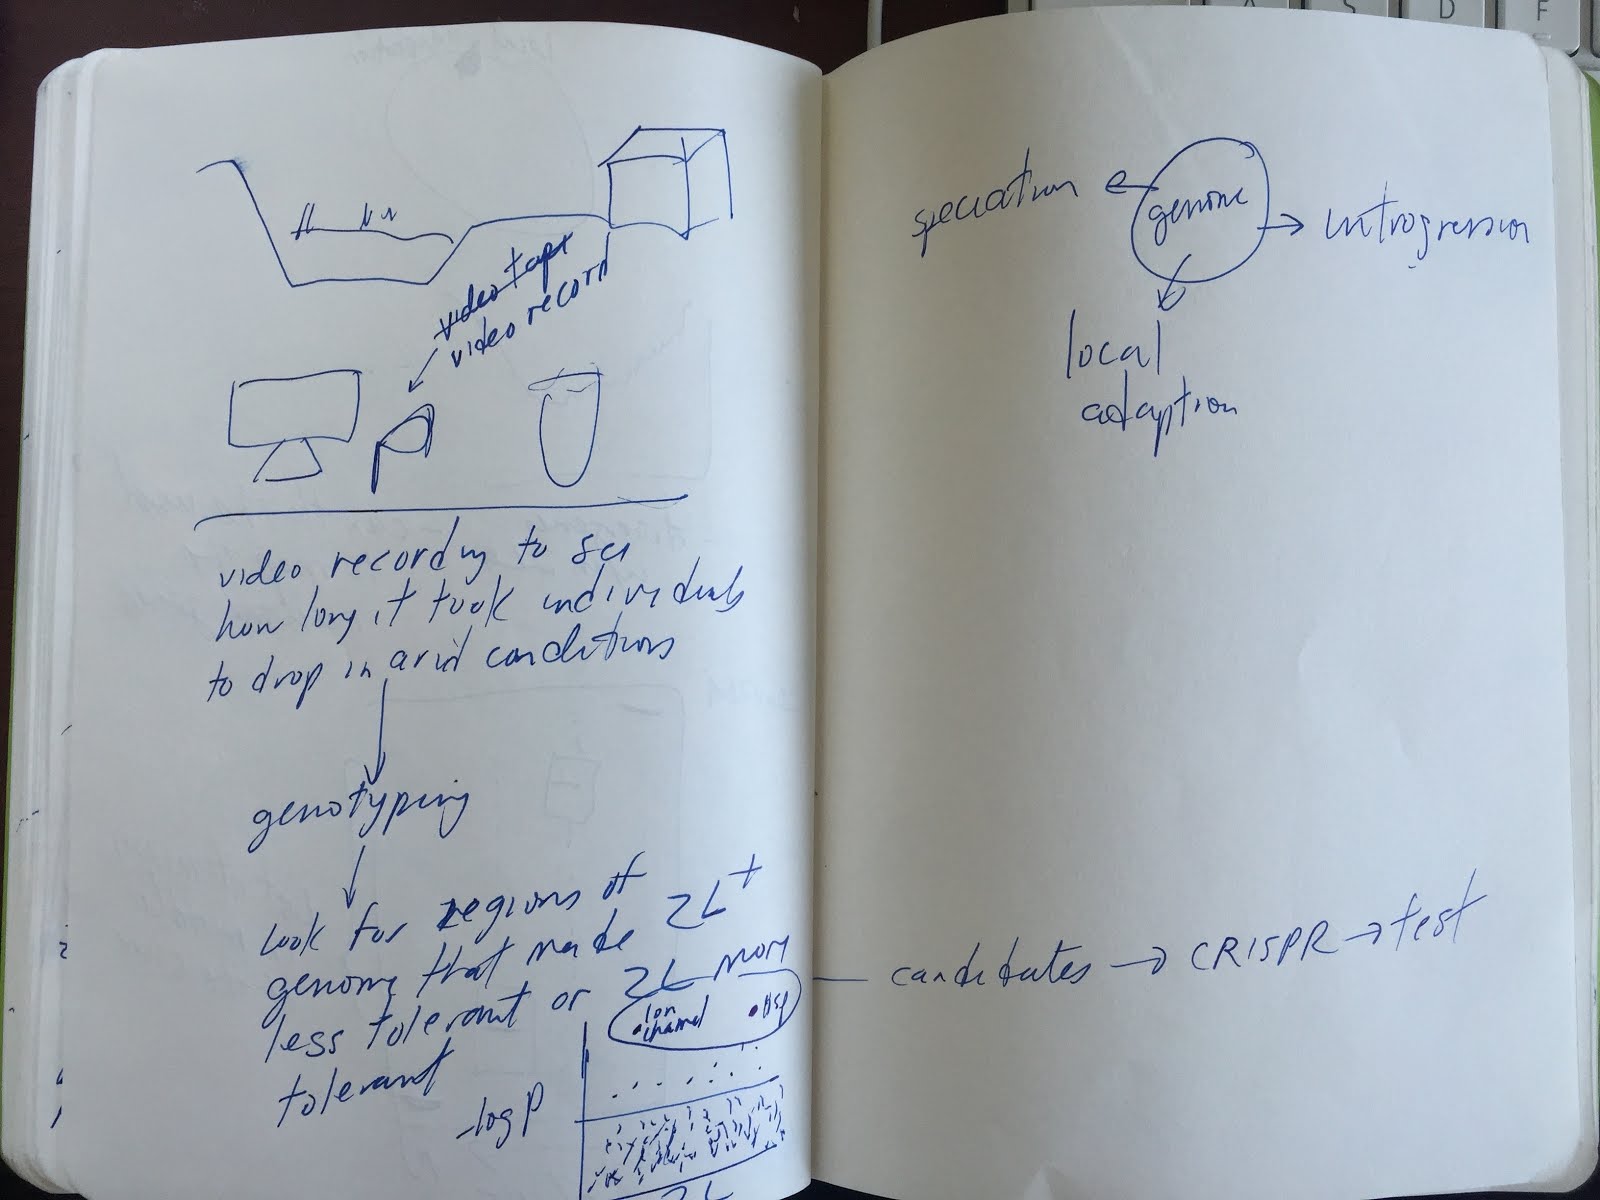 video tape
video record
video recording to see
how long it took individuals
to drop in arid conditions
genotyping
look for regions of
genome that made 2L+
less tolerant or 2L more
tolerant
Ion
channel
Hsp
-log P
2L
speciation
genome
introgression
local
adaption
candidates → CRISPR → test
A S D F